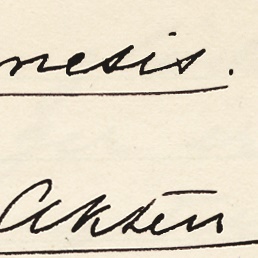 nesis.
Akten